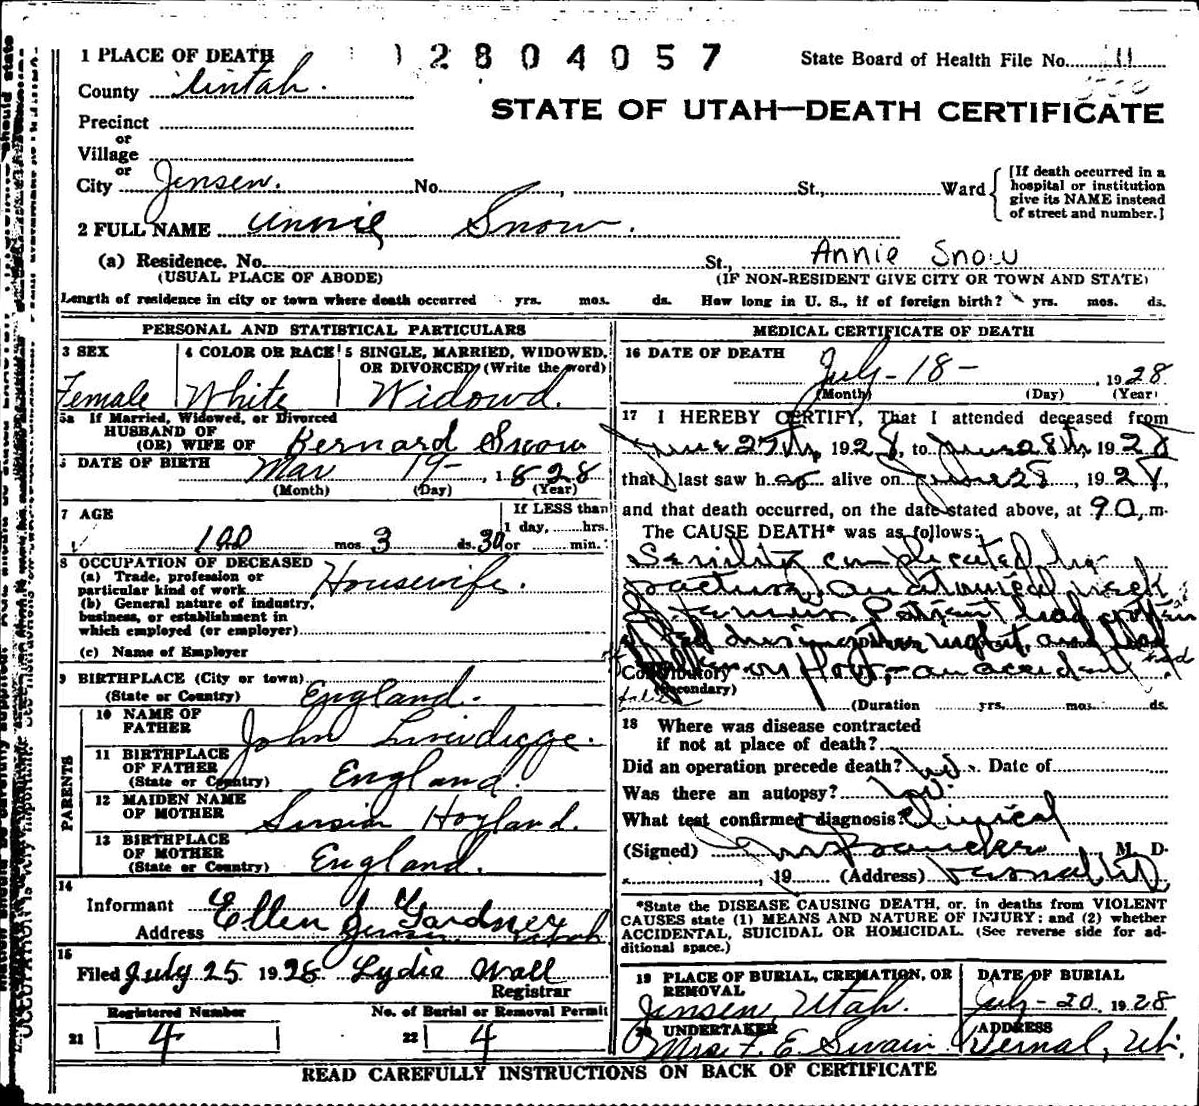 1 PLACE OF DEATH
12804057
State Board of Health File No. 11
County Uintah.
STATE OF UTAH—DEATH CERTIFICATE
Precinct
or
Village
or
City Jensen. No. , St., Ward
[If death occurred in a
hospital or institution
give its NAME instead
of street and number.]
2 FULL NAME Annie Snow.
Annie Snow
(a) Residence. No. St.,
(USUAL PLACE OF ABODE) (IF NON-RESIDENT GIVE CITY OR TOWN AND STATE)
Length of residence in city or town where death occurred yrs. mos. ds. How long in U. S., if of foreign birth? yrs. mos. ds.
PERSONAL AND STATISTICAL PARTICULARS
3 SEX 4 COLOR OR RACE 5 SINGLE, MARRIED, WIDOWED,
OR DIVORCED (Write the word)
Female White Widowd.
5a If Married, Widowed, or Divorced
HUSBAND OF
(OR) WIFE OF Bernard Snow
DATE OF BIRTH Mar 19- , 1828
(Month) (Day) (Year)
7 AGE If LESS than
1 day, hrs.
100 mos. 3 ds. 30 or min.
8 OCCUPATION OF DECEASED
(a) Trade, profession or
particular kind of work Housewife.
(b) General nature of industry,
business, or establishment in
which employed (or employer)
(c) Name of Employer
9 BIRTHPLACE (City or town)
(State or Country) England.
PARENTS
10 NAME OF
FATHER John
11 BIRTHPLACE
OF FATHER
(State or Country) England.
12 MAIDEN NAME
OF MOTHER Hoyland.
13 BIRTHPLACE
OF MOTHER
(State or Country) England.
14
Informant Ellen J Gardner
Address Jensen Utah
15
Filed July 25 1928 Lydia Wall
Registrar
Registered Number No. of Burial or Removal Permit
21 4 22 4
MEDICAL CERTIFICATE OF DEATH
16 DATE OF DEATH
July - 18 - , 1928
(Month) (Day) (Year)
17 I HEREBY CERTIFY, That I attended deceased from
June 27th, 1928, to June 28th 1928
that I last saw h er alive on June 28 , 1928,
and that death occurred, on the date stated above, at 9 m.
The CAUSE DEATH* was as follows:
Senility complicated by
fracture anatomical neck
Patient had gotten
during the night, and had
on floor - an accident
Contributory
(Secondary)
(Duration yrs. mos. ds.
18 Where was disease contracted
if not at place of death?
Did an operation precede death? no. Date of
Was there an autopsy? no
What test confirmed diagnosis? Clinical
(Signed) M. D.
, 19 (Address) Vernal Ut
*State the DISEASE CAUSING DEATH, or, in deaths from VIOLENT
CAUSES state (1) MEANS AND NATURE OF INJURY; and (2) whether
ACCIDENTAL, SUICIDAL OR HOMICIDAL. (See reverse side for ad-
ditional space.)
19 PLACE OF BURIAL, CREMATION, OR
REMOVAL
Jensen, Utah.
DATE OF BURIAL
July - 20 1928
20 UNDERTAKER
Mrs. F. E. Swain.
ADDRESS
Vernal, Ut.
READ CAREFULLY INSTRUCTIONS ON BACK OF CERTIFICATE